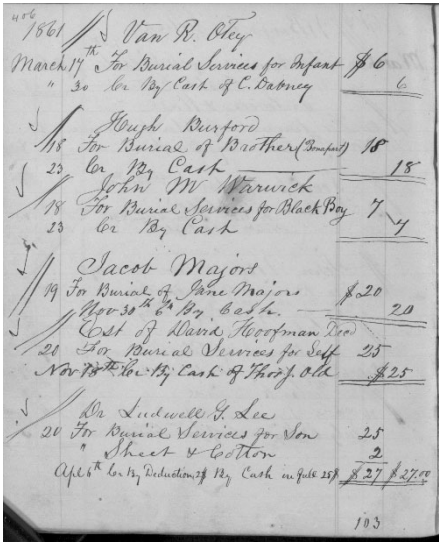 406
1861 Van R. Otey
March 17th For Burial Services for Infant $6
" 30 Cr By Cash of C. Dabney 6
Hugh Burford
18 For Burial of Brother (Bonapart) 18
23 Cr By Cash 18
John M Warwick
18 For Burial Services for Black Boy 7
23 Cr By Cash 7
Jacob Majors
19 For Burial of Jane Majors $20
Nov 30th Cr By Cash. 20
Est of David Hoofman Decd
20 For Burial Services for Self 25
Nov 18th Cr By Cash of Thos J. Old $25
Dr Ludwell G. Lee
20 For Burial Services for Son 25
" Sheet & Cotton 2
Apl 6th Cr By Deduction 2$ By Cash in full 25$ $27 $27.00
103